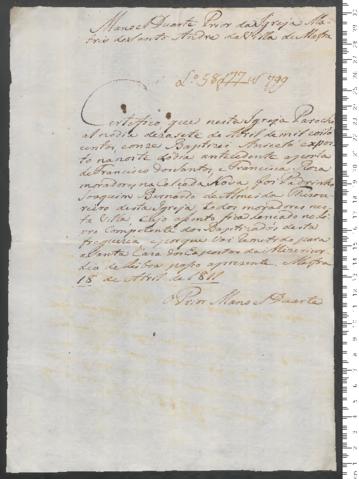 Manoel Duarte Prior da Igreja Ma-
tris de Santo Andre da Villa de Mafra
Certifico que nesta Igreja Paroche
al no dia dezasete de Abril de mil coito
centos, e onze Baptizei Aniceto expos-
to na noite do dia antecedente a porta
de Francisco dos Santos, e Francisca Roza
moradores na Calçada Nova, foi Padrinho
Joaquim Bernardo de Almeida Thezou-
reiro desta Igreja todos moradores nes-
ta Villa cujo asento fica lançado no Li-
vro Competente dos Baptizados desta
Freguezia e porque vai remetido para
a Santa Caza dos Expostos da Mizericor-
dia de Lisboa paso a prezente. Mafra
18 de Abril de 1811
O Prior Manoel Duarte